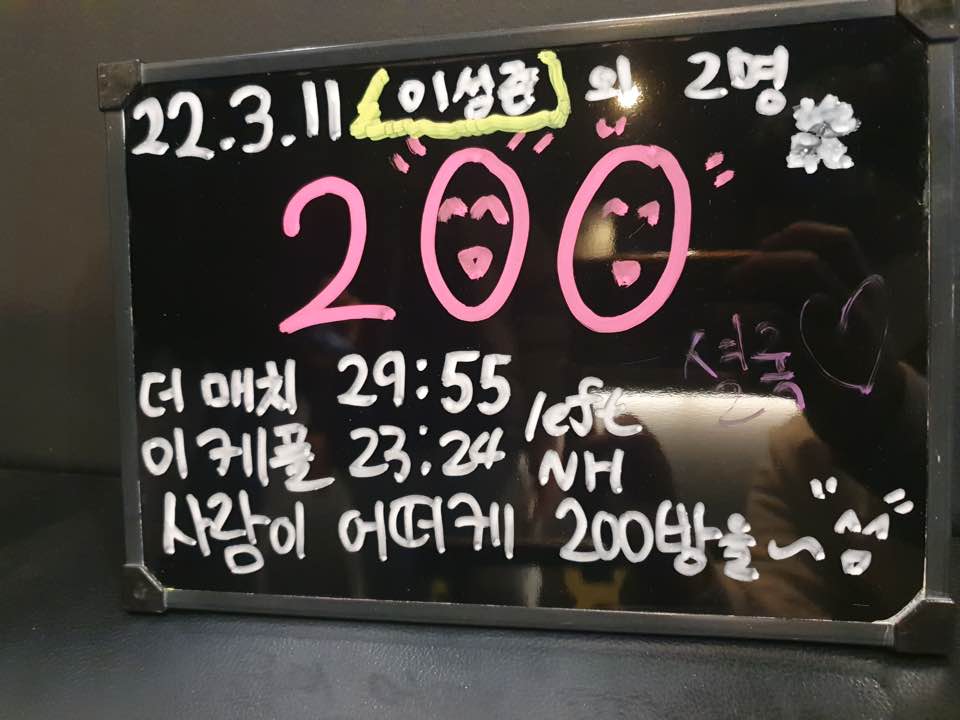 22.3.11 이성균 외 2명
200
더 매치 29:55 left
이케플 23:24 NH
사람이 어떠케 200방을~